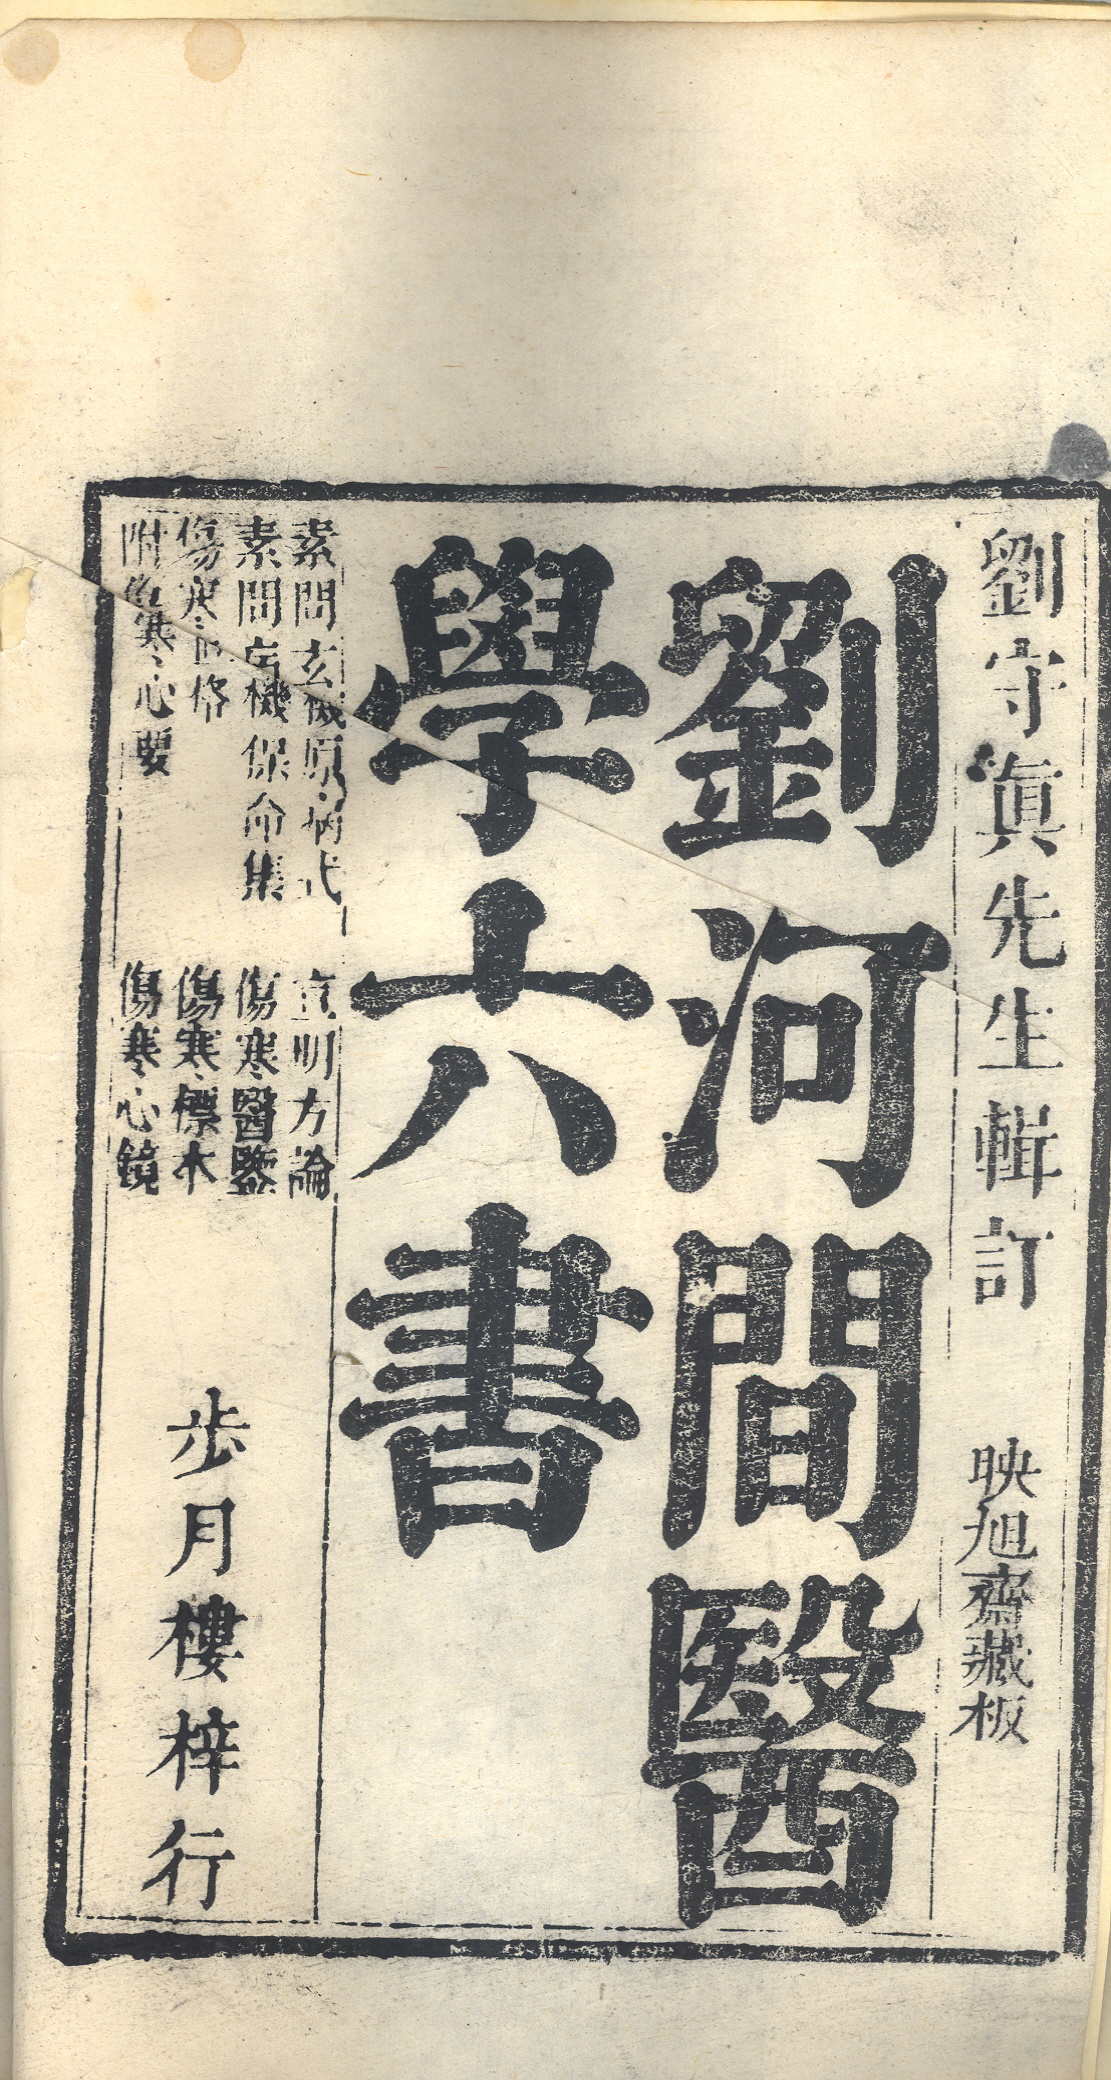 劉守眞先生輯訂
映旭齋藏板
劉河間醫
學六書
素問玄機原病式
素問病機保命集
傷寒直格
附傷寒心要
宣明方論
傷寒醫鑒
傷寒標本
傷寒心鏡
步月樓梓行